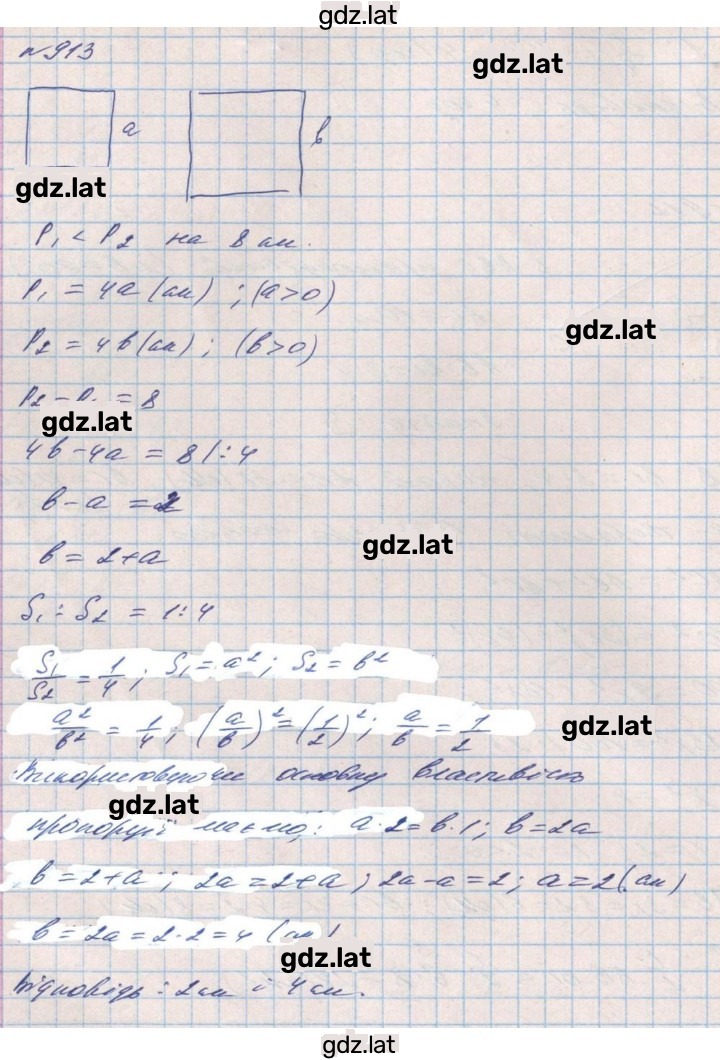 gdz.lat
№913
gdz.lat
a
в
gdz.lat
P₁ < P₂ на 8 см.
P₁ = 4a (см) ; (a>0)
gdz.lat
P₂ = 4в (см) ; (в>0)
P₂ - P₁ = 8
gdz.lat
4в - 4a = 8 | : 4
в - a = 2
gdz.lat
в = 2+a
S₁ : S₂ = 1:4
S₁/S₂ = 1/4 ; S₁ = a² ; S₂ = в²
a²/в² = 1/4 ; (a/в)² = (1/2)² ; a/в = 1/2
gdz.lat
Використовуючи основну властивість
gdz.lat
пропорції маємо: a·2 = в·1 ; в = 2a
в = 2+a ; 2a = 2+a ; 2a-a = 2 ; a = 2 (см)
в = 2a = 2·2 = 4 (см)
gdz.lat
Відповідь : 2см і 4см.
gdz.lat